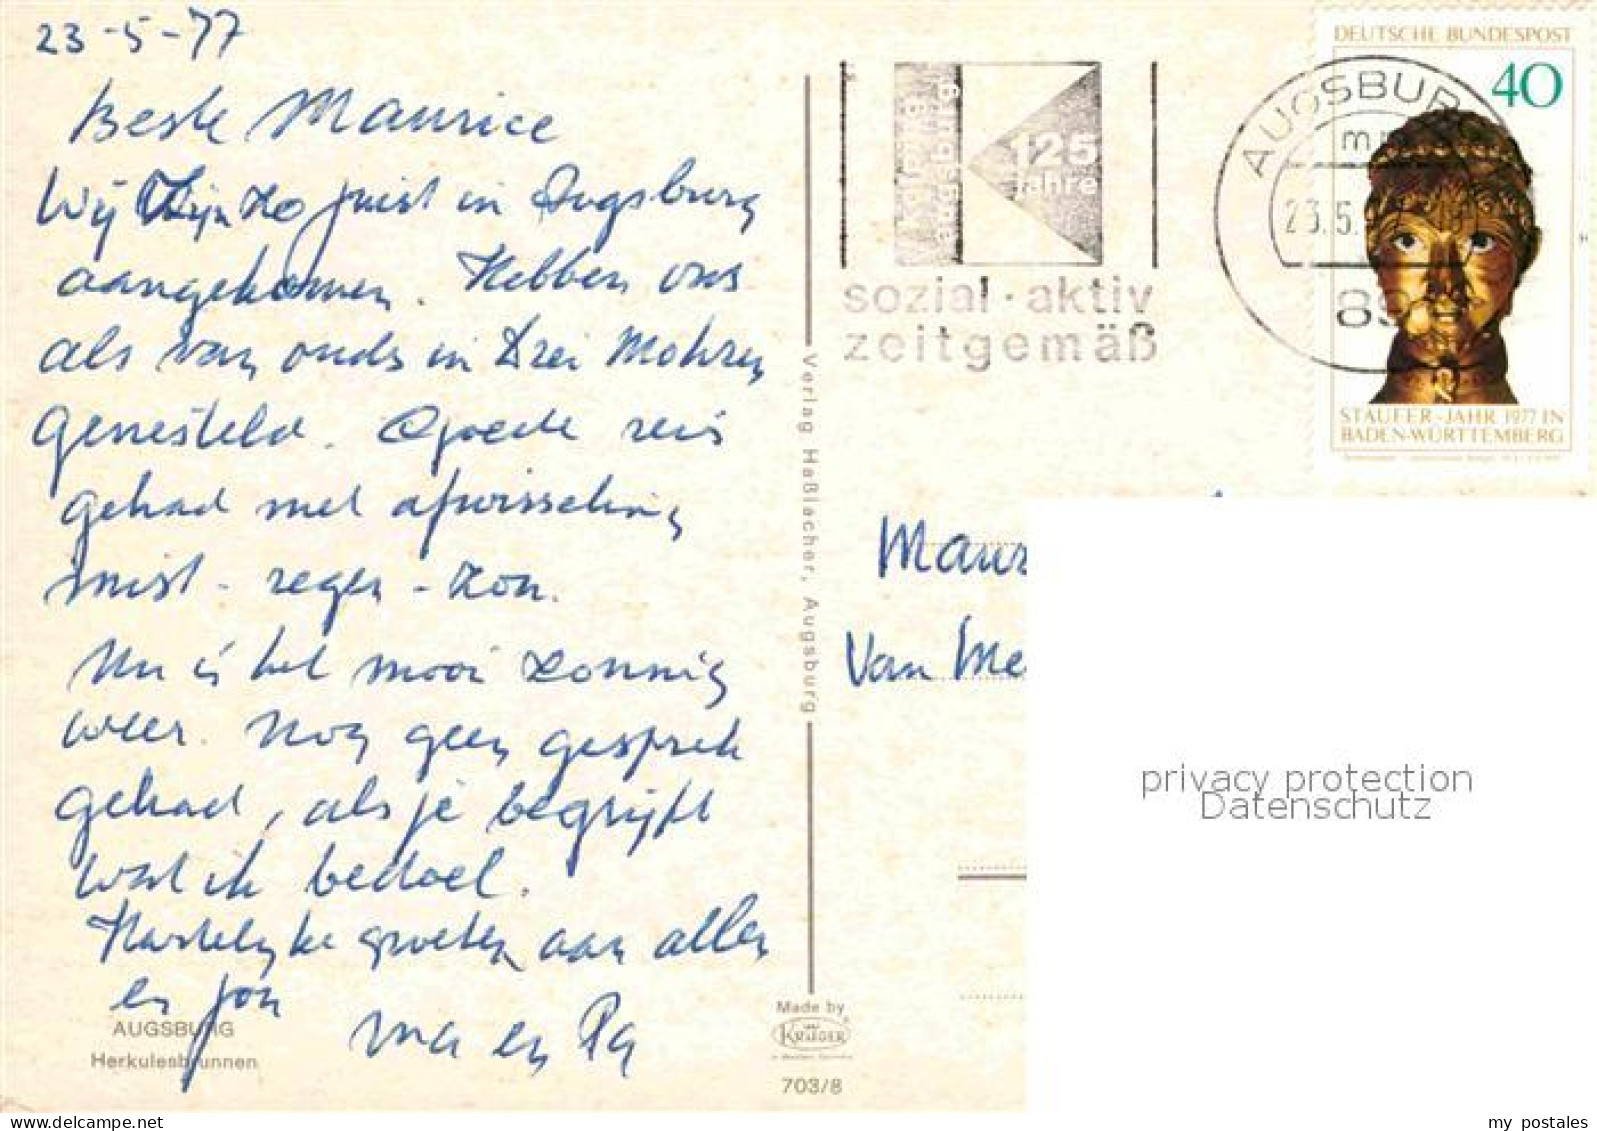 23-5-77
Beste Maurice
Wij zijn zo juist in Augsburg
aangekomen. Hebben ons
als van ouds in Drei Mohren
genesteld. Goede reis
gehad met afwisseling
mist - regen - zon.
Nu is het mooi zonnig
weer. Nog geen gesprek
gehad, als je begrijpt
wat ik bedoel.
Hartelijke groeten aan allen
en jou
Ma en Pa
AUGSBURG
Herkulesbrunnen
Verlag Haßlacher, Augsburg
Made by
KRÜGER
703/8
augsburg
125
Jahre
sozial · aktiv
zeitgemäß
AUGSBURG
23.5.
89
DEUTSCHE BUNDESPOST
40
STAUFER-JAHR 1977 IN
BADEN-WÜRTTEMBERG
Maur
Van Me
privacy protection
Datenschutz
www.delcampe.net
my_postales